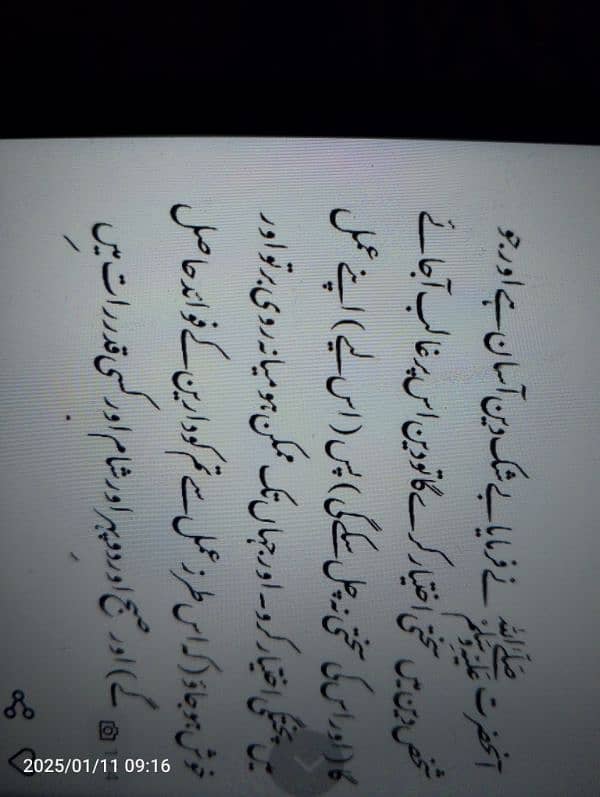 آنحضرت ﷺ نے فرمایا بے شک دین آسان ہے اور جو
شخص دین میں سختی اختیار کرے گا تو دین اس پر غالب آجائے
گا (اور اس کی سختی نہ چل سکے گی) پس (اس لیے) اپنے عمل
میں پختگی اختیار کرو۔ اور جہاں تک ممکن ہو میانہ روی برتو اور
خوش ہو جاؤ (کہ اس طرز عمل سے تم کو دارین کے فوائد حاصل ہوں
گے) اور صبح اور دوپہر اور شام اور کسی قدر رات میں
2025/01/11 09:16